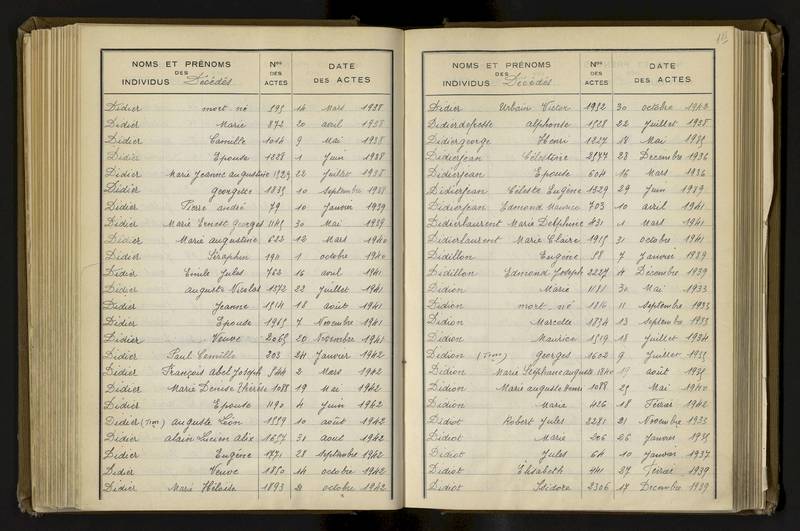 NOMS ET PRÉNOMS DES INDIVIDUS Décédés Nos DES ACTES DATE DES ACTES
Didier mort né 595 14 Mars 1938
Didier Marie 872 20 avril 1938
Didier Camille 1014 9 Mai 1938
Didier Epouse 1228 1 Juin 1938
Didier Marie Jeanne augustine 1529 22 Juillet 1938
Didier georgette 1835 10 Septembre 1938
Didier Pierre andré 79 10 Janvier 1939
Didier Marie Ernest Georges 1145 30 Mai 1939
Didier Marie augustine 622 12 Mars 1940
Didier Séraphin 1 octobre 1940
Didier Emile Jules 762 16 avril 1941
Didier auguste Nicolas 1372 22 Juillet 1941
Didier Jeanne 1514 18 août 1941
Didier Epouse 1965 7 Novembre 1941
Didier Veuve 2065 20 Novembre 1941
Didier Paul Camille 203 24 Janvier 1942
Didier François Abel Joseph 544 2 Mars 1942
Didier Marie Denise Thérèse 1088 19 Mai 1942
Didier Epouse 1190 4 Juin 1942
Didier (Tion) auguste Léon 1559 10 août 1942
Didier alain Lucien alix 1657 30 aout 1942
Didier Eugène 1771 28 Septembre 1942
Didier Veuve 1850 14 octobre 1942
Didier Marie Héloïse 1893 octobre 1942
NOMS ET PRÉNOMS DES INDIVIDUS Décédés Nos DES ACTES DATE DES ACTES
Didier Urbain Victor 1952 30 octobre 1942
Didierdefosse alphonse 1528 22 Juillet 1938
Didiergeorge Henri 1227 18 Mai 1935
Didierjean Célestine 2577 28 Decembre 1936
Didierjean Epouse 604 16 Mars 1936
Didierjean Céleste Eugène 1329 29 Juin 1939
Didierjean Edmond Maurice 703 10 avril 1941
Didierlaurent Marie Delphine 431 1 Mars 1941
Didierlaurent Marie Claire 1915 31 octobre 1941
Didillon Eugène 58 7 Janvier 1939
Didillon Edmond Joseph 2227 4 Décembre 1939
Didion Marie 1181 30 Mai 1933
Didion mort né 1816 11 Septembre 1933
Didion Marcelle 1834 13 Septembre 1933
Didion Maurice 1519 18 Juillet 1934
Didion (Tion) Georges 1602 9 Juillet 1935
Didion Marie Stéphane auguste 1840 août 1935
Didion Marie auguste Henri 1088 25 Mai 1940
Didion Marie 426 18 Février 1942
Didiot Robert Jules 2281 21 Novembre 1933
Didiot Marie 206 26 Janvier 1935
Didiot Jules 64 10 Janvier 1937
Didiot Elisabeth 441 27 Février 1939
Didiot Isidore 2306 17 Decembre 1939